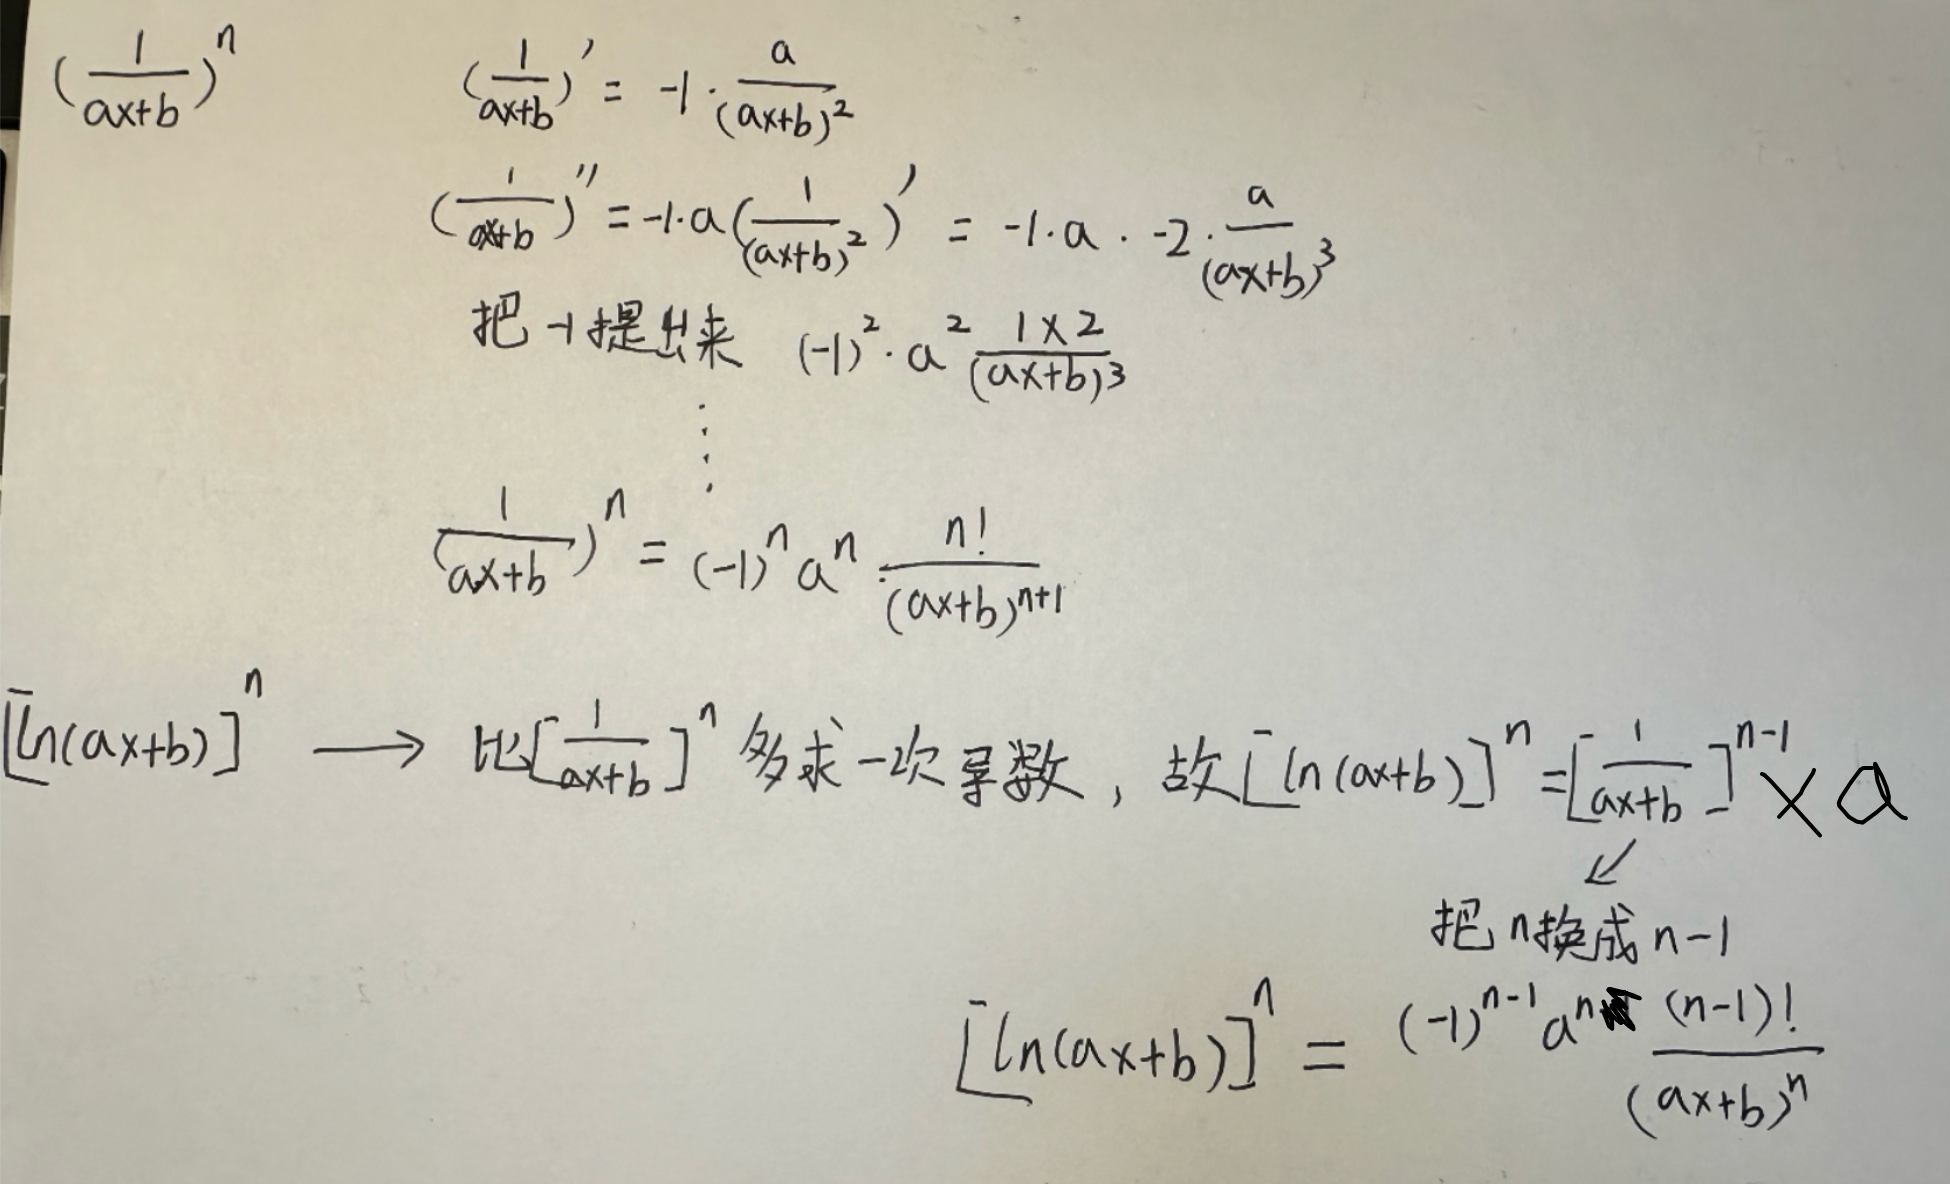 (1/(ax+b))^n (1/(ax+b))' = -1·a/(ax+b)^2
(1/(ax+b))'' = -1·a(1/(ax+b)^2)' = -1·a·-2·a/(ax+b)^3
把-1提出来 (-1)^2·a^2 1×2/(ax+b)^3
(1/(ax+b))^n = (-1)^n a^n · n!/(ax+b)^{n+1}
[ln(ax+b)]^n ⟶ 比[1/(ax+b)]^n 多求一次导数，故[ln(ax+b)]^n=[1/(ax+b)]^{n-1} × a
↙
把n换成n-1
[ln(ax+b)]^n = (-1)^{n-1} a^n (n-1)!/(ax+b)^n